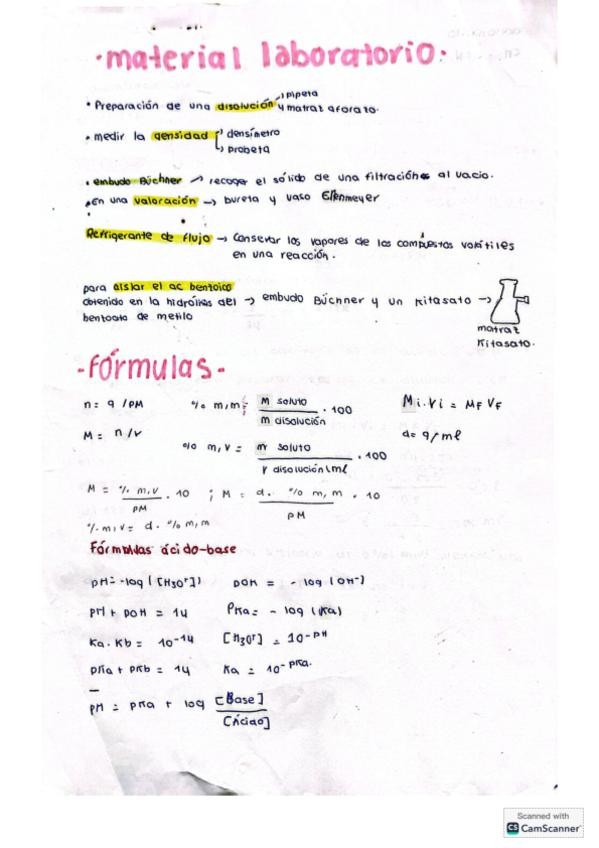 ·material laboratorio·
• Preparación de una disolución y matraz aforato.
pipeta
• medir la densidad densímetro
probeta
• embudo Büchner → recoger el sólido de una filtración al vacio.
• En una valoración → bureta y vaso Erlenmeyer
Refrigerante de flujo → Conservar los vapores de los compuestos volátiles
en una reacción.
para aislar el ac benzoico
obtenido en la hidrólisis del → embudo Büchner y un Kitasato →
benzoato de metilo
matraz
Kitasato.
-fórmulas-
n= g /PM
% m,m= m soluto / m disolución · 100
Mi.Vi = MF VF
M = n/v
d= g/ml
% m,v = m soluto / v disolución (ml · 100
M = % m,v / PM . 10 ; M = d. % m,m / PM . 10
% m,v= d. % m,m
Fórmulas ácido-base
pH=-log ([H3O+])
pOH = - log (OH-)
pH + pOH = 14
PKa= - log (Ka)
Ka. Kb = 10-14
[H3O+] = 10-pH
pKa + pKb = 14
Ka = 10-pKa.
pH = pKa + log [Base] / [Ácido]
Scanned with
CS CamScanner